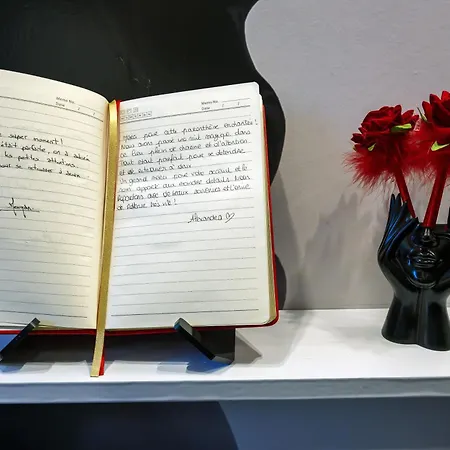 Memo No.
Date / /
super moment!
était parfaite, on a adoré
les petites attentions.
se retrouver à deux
Memo No.
Date / /
pour cette parenthèse enchantée!
Nous avons passé une nuit magique dans
ce lieu plein de charme et d'attention
Tout était parfait pour se détendre
et se retrouver à deux.
Un grand merci pour votre accueil et le
soin apporté aux moindre détails. Nous
Repartons avec de beaux souvenirs et l'envie
de Revenir très vite!
Alexandra ♡